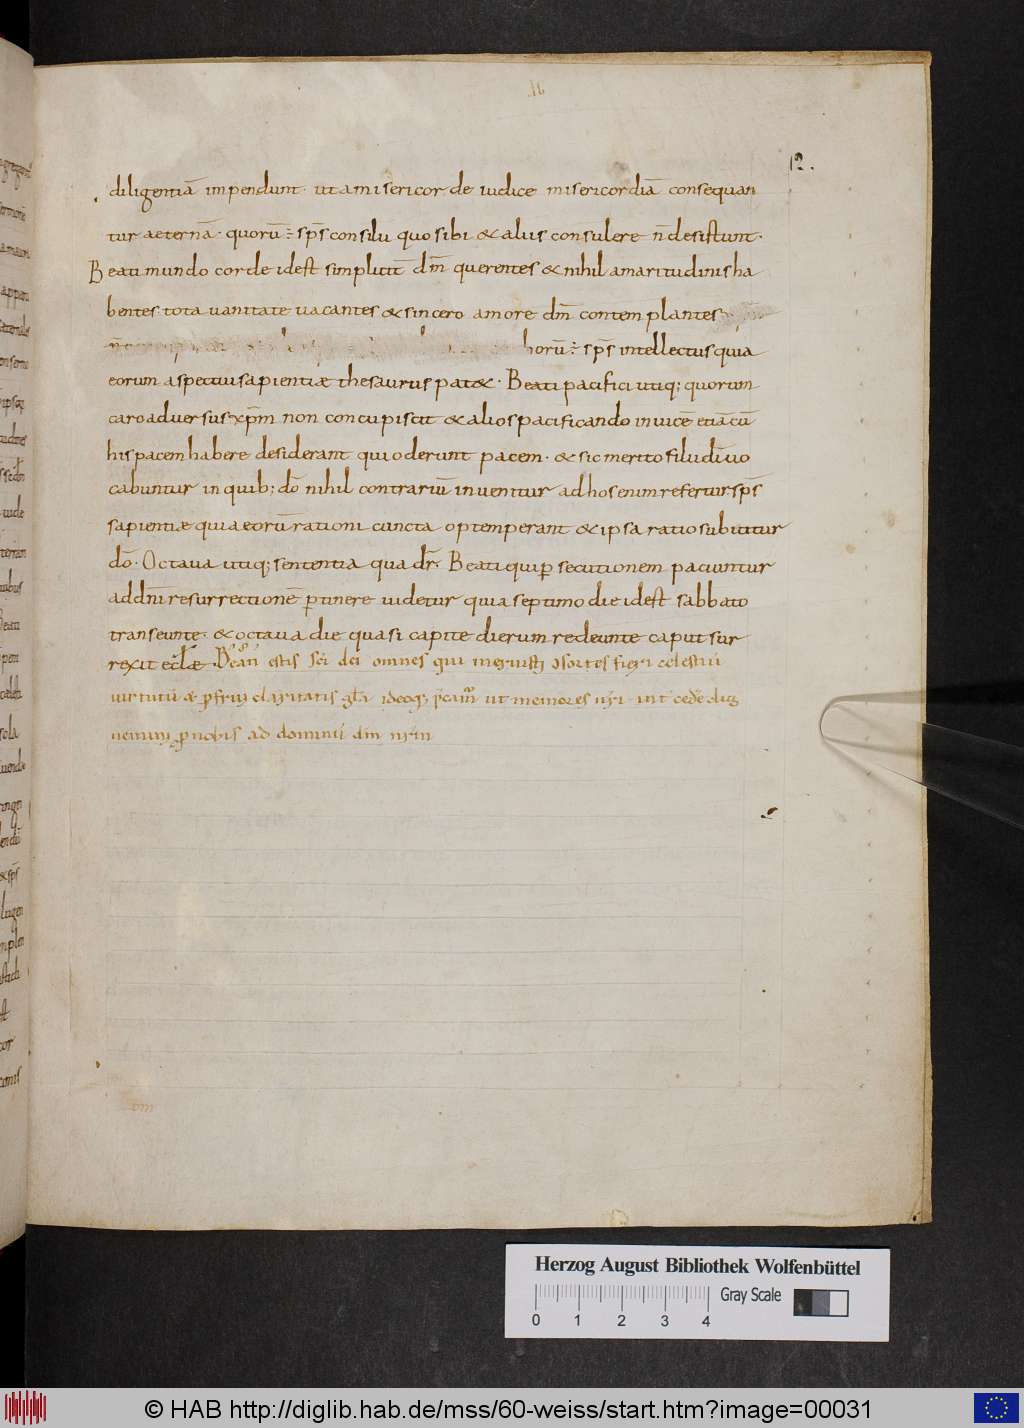 12.
diligentiā impendunt · ut a misericorde iudice misericordiā consequan
tur aeternā · quorū ÷ sp̄s consilii quo sibi & aliis consulere n̄ desistunt ·
Beati mundo corde idest simpliciť dm̄ querentes & nihil amaritudinis ha
bentes tota uanitate uacantes & sincero amore dm̄ contemplantes
horū ÷ sp̄s intellectus quia
eorum aspectui sapientiæ thesaurus pat& · Beati pacifici utiq; quorum
caro aduersus xp̄m non concupiscit & alios pacificando inuicē etiā cū
his pacem habere desiderant qui oderunt pacem · & sic merito filii dī uo
cabuntur in quib; dō nihil contrariū inuenitur ad hos enim refertur sp̄s
sapientiæ quia eorū rationi cuncta optemperant & ipsa ratio subicitur
dō · Octaua utiq; sententia qua dr̄ · Beati qui ꝑsecutionem patiuntur
ad dn̄i resurrectionē ꝑtinere uidetur quia septimo die idest sabbato
transeunte · & octaua die quasi capite dierum redeunte caput sur
rexit eclæ · Beati estis sc̄i dei omnes qui meruistis ɔsortes fieri celestiū
uirtutū æ ꝑfrui claritatis glā ideoq; p̄camur ut memores nr̄i
ꝓ nobis ad dominū dm̄ nr̄m
Herzog August Bibliothek Wolfenbüttel
Gray Scale
0 1 2 3 4
© HAB http://diglib.hab.de/mss/60-weiss/start.htm?image=00031